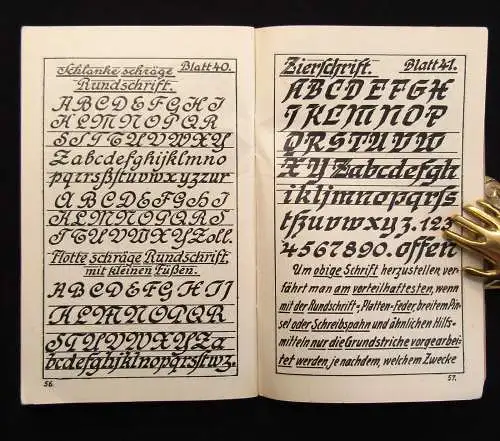 Schlanke schräge Blatt 40.
Rundschrift.
ABCDEFGHIJ
KLMNOPQR
STUVWXY
Zabcdefghijklmno
pqrsßstuvwxyzzur
ABCDEFGHIJ
KLMNOPQRS
STUVWXYZoll.
Flotte schräge Rundschrift
mit kleinen Füßen.
ABCDEFGHIJ
KLMNOPQR
STUVWXYZa
bcdefghijklmnopqrsſtwz.
56.
Zierschrift. Blatt 41.
ABCDEFGH
IJKLMNOP
QRSTUVW
XYZabcdefgh
ikljmnopqrſs
tßuvwxyz.123
4567890.offen
Um obige Schrift herzustellen, ver-
fährt man am vorteilhaftesten, wenn
mit der Rundschrift-, Platten-Feder, breitem Pin-
sel oder Schreibspahn und ähnlichen Hilfs-
mitteln nur die Grundstriche vorgearbei-
tet werden, je nachdem, welchem Zwecke
57.